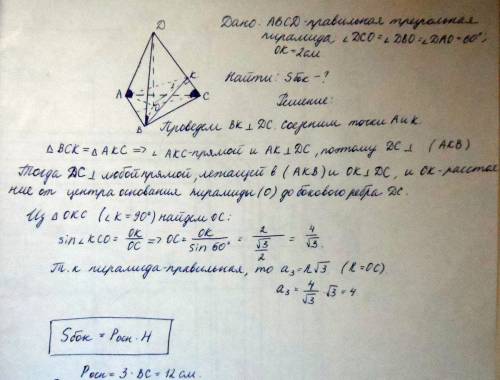 D
K
A
C
O
B
Дано: ABCD-правильная треугольная
пирамида ∠DCO=∠DBO=∠DAO=60°,
OK=2см
Найти: Sбок-?
Решение:
Проведем BK⊥DC. Соединим точки A и K.
△BCK=△AKC => ∠AKC-прямой и AK⊥DC, поэтому DC⊥ (AKB)
Тогда DC⊥ любой прямой, лежащей в (AKB) и OK⊥DC, и OK-расстоя
ние от центра основания пирамиды (O) до бокового ребра DC.
Из △OKC (∠K=90°) найдем OC:
sin∠KCO = OK/OC => OC = OK/sin 60° = 2/(√3/2) = 4/√3.
Т.к пирамида-правильная, то a₃=R√3 (R=OC)
a₃ = 4/√3 · √3 = 4
Sбок = Pосн · H
Pосн = 3·BC = 12см.